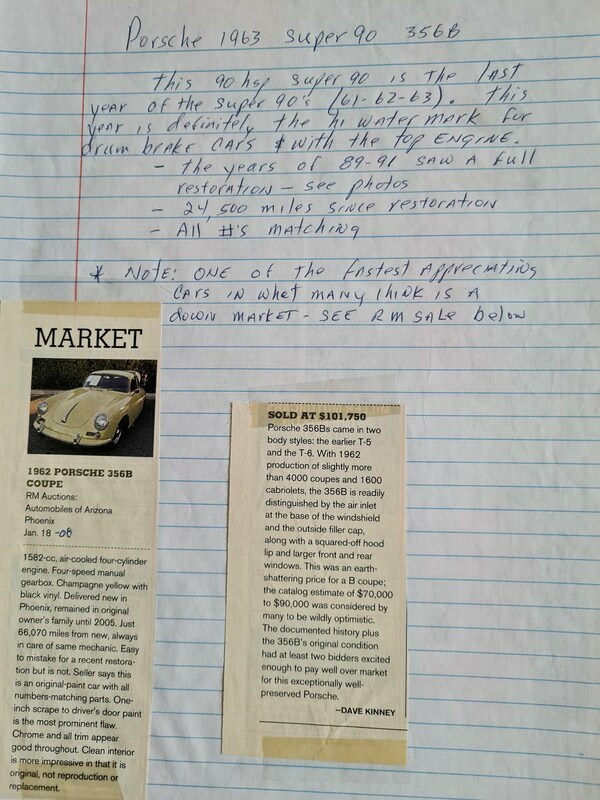 Porsche 1963 Super 90 356B
This 90 hsp Super 90 is the last
year of the Super 90's (61-62-63). This
year is definitely the hi water mark for
drum brake cars & with the top ENGINE.
- The years of 89-91 saw a full
restoration - see photos
- 24,500 miles since restoration
- All #'s matching
* Note: ONE of the fastest Appreciating
CARS in what many think is a
down market - SEE RM SALE below
MARKET
1962 PORSCHE 356B
COUPE
RM Auctions:
Automobiles of Arizona
Phoenix
Jan. 18 -08
1582-cc, air-cooled four-cylinder
engine. Four-speed manual
gearbox. Champagne yellow with
black vinyl. Delivered new in
Phoenix, remained in original
owner's family until 2005. Just
66,070 miles from new, always
in care of same mechanic. Easy
to mistake for a recent restora-
tion but is not. Seller says this
is an original-paint car with all
numbers-matching parts. One-
inch scrape to driver's door paint
is the most prominent flaw.
Chrome and all trim appear
good throughout. Clean interior
is more impressive in that it is
original, not reproduction or
replacement.
SOLD AT $101,750
Porsche 356Bs came in two
body styles: the earlier T-5
and the T-6. With 1962
production of slightly more
than 4000 coupes and 1600
cabriolets, the 356B is readily
distinguished by the air inlet
at the base of the windshield
and the outside filler cap,
along with a squared-off hood
lip and larger front and rear
windows. This was an earth-
shattering price for a B coupe;
the catalog estimate of $70,000
to $90,000 was considered by
many to be wildly optimistic.
The documented history plus
the 356B's original condition
had at least two bidders excited
enough to pay well over market
for this exceptionally well-
preserved Porsche.
–DAVE KINNEY